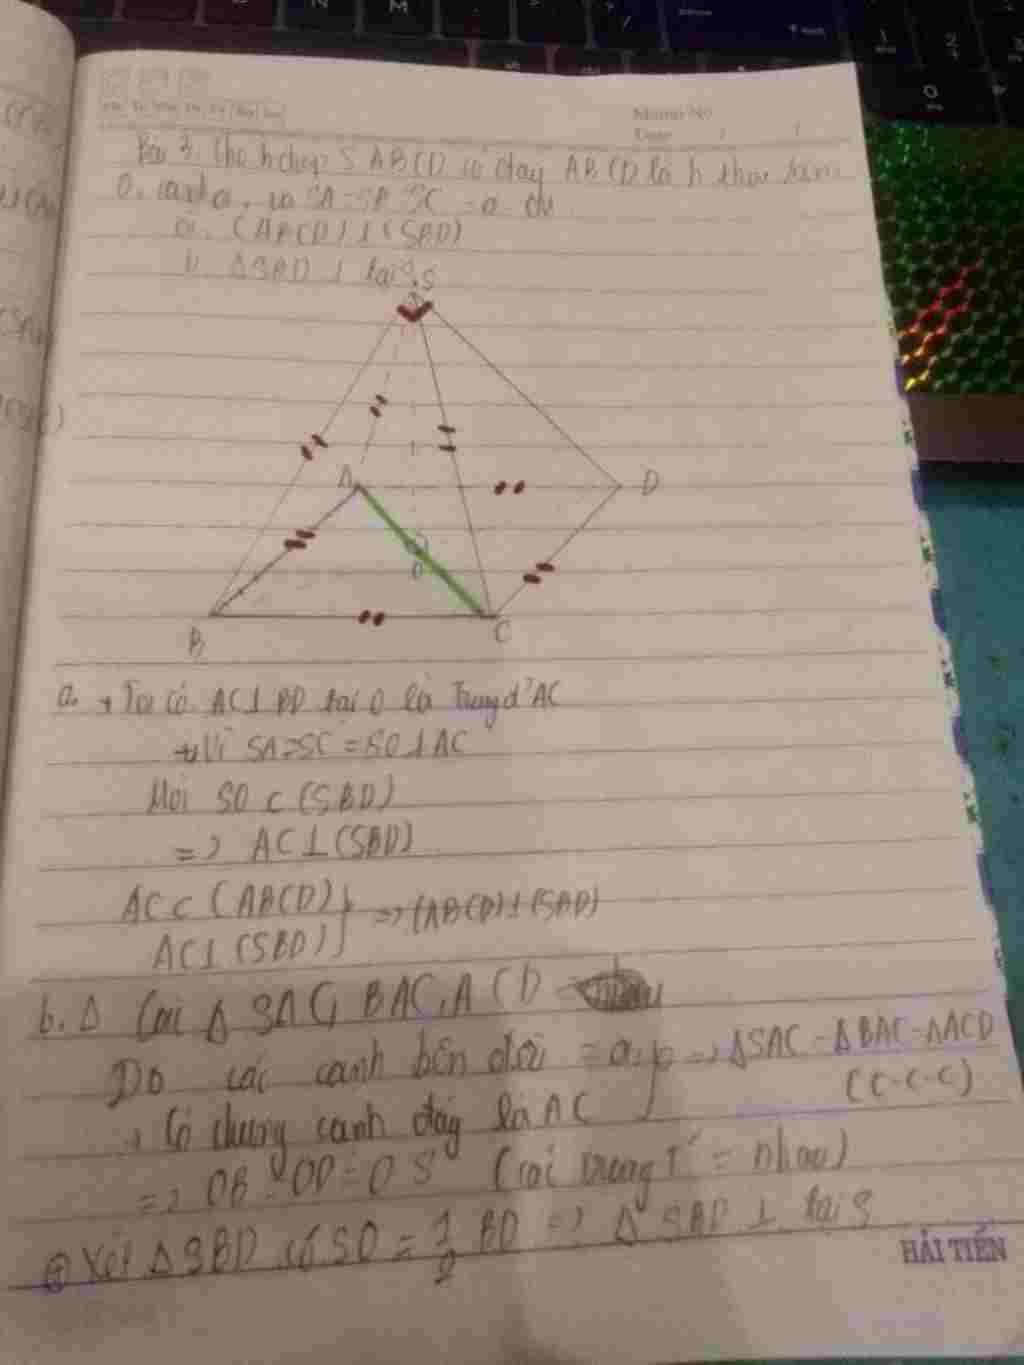 Memo No.
Date / /
Bài 3. Cho h chóp S ABCD có đáy ABCD là h thoi tâm
O. cạnh a, và SA=SB=SC=a. cm
a. (ABCD)⊥(SBD)
b. Δ SBD ⊥ tại S
S
A
D
O
B
C
a. + Ta có AC⊥BD tại O là Trung đ' AC
+ Vì SA=SC=SO⊥AC
Mà SO ⊂ (SBD)
=> AC⊥(SBD)
AC⊂(ABCD)
AC⊥(SBD)} => (ABCD)⊥(SBD)
b. Δ Các Δ SAC, BAC, ACD =
Do các cạnh bên đều = a. => ΔSAC = ΔBAC = ΔACD
+ Có chung cạnh đáy là AC (c-c-c)
=> OB = OD = OS (các trung T' = nhau)
+ Xét Δ SBD có SO = 1/2 BD => Δ SBD ⊥ tại S
HẢI TIẾN